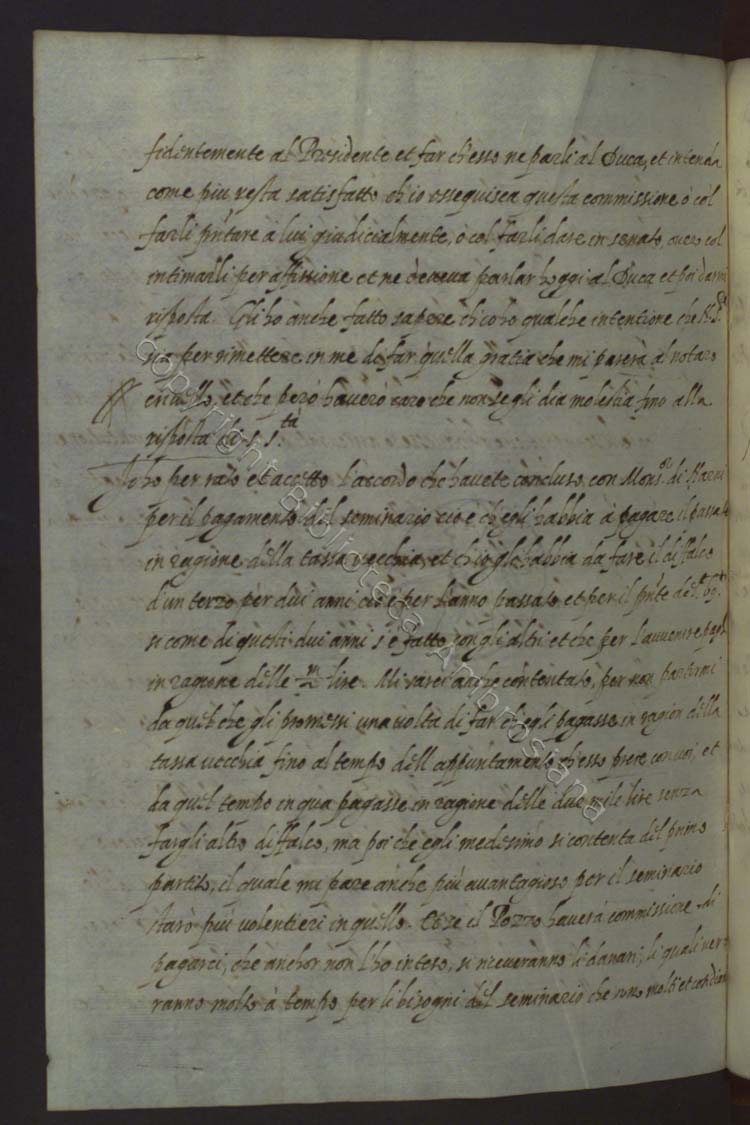 fidentemente al Presidente et far ch'esso ne parli al Duca, et intenda
come piu resta satisfatto ch'io esseguisca questa commissione ò col
farli pntare à lui giudicialmente, ò col farli dare in senato, overo col
intimarli per affissione et ne deveva parlar hoggi al Duca et poi darmi
risposta. Gli ho anche fatto sapere ch'io ho qualche intentione che N. S.re
sia per rimettere in me di far quella gratia che mi parerà al notaro
, et che però haverò caro che non se gli dia molestia fino alla
risposta di S. S.tà
Io ho per rato et accetto l'accordo che havete concluso con Mons.or di
per il pagamento del seminario cioe ch'egli habbia à pagare il passato
in ragione della tassa vecchia, et ch'io gli habbia da fare il diffalco
d'un terzo per dui anni cioè per l'anno passato et per il pnte de
si come di questi dui anni s'è fatto con gli altri et che per l'avvenire paghi
in ragione delle lire. Mi sarei anche contentato, per non partirmi
da quel che gli promessi una volta di far ch'egli pagasse in ragion della
tassa vecchia fino al tempo dell'appuntamento ch'esso prese con voi, et
da quel tempo in qua pagasse in ragione delle due mile lire senza
fargli altro diffalco, ma poi che egli medesimo si contenta del primo
partito, il quale mi pare anche più avantagioso per il seminario
starò più volentieri in quello. Et se il Pozzo haverà commissione di
pagarci, che anchor non l'ho inteso, si riceveranno li danari, li quali ver-
ranno molto à tempo per li bisogni del seminario che sono molti et
Copyright Biblioteca Ambrosiana